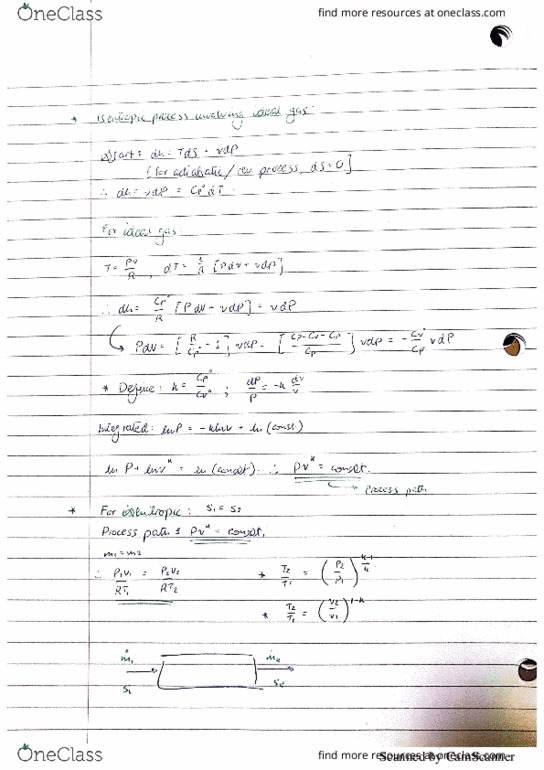 OneClass
find more resources at oneclass.com
* Isentropic process involving ideal gas.
Start: dh = Tds + vdP
[for adiabatic/ process, ds=0]
∴ dh = vdP = Cp° dT
For ideal gas
T = Pv/R , dT = 1/R [Pdv + vdP]
∴ dh = Cp°/R [Pdv + vdP] = vdP
Pdv = [R/Cp° - 1] vdP = [(Cp-Cv-Cp)/Cp] vdP = - Cv°/Cp vdP
* Define: k = Cp°/Cv° ; dP/P = -k dv/v
Integrated: lnP = -klnv + ln (const)
ln P + lnv^k = ln (const). ∴ Pv^k = const.
Process path
* For isentropic: s1 = s2
Process path 1 Pv^k = const.
m1 = m2
∴ P1v1/RT1 = P2v2/RT2
* T2/T1 = (P2/P1)^(k-1/k)
* T2/T1 = (v2/v1)^(1-k)
ṁ1
ṁ2
S1
OneClass
find more resources at oneclass.com
Scanned by CamScanner